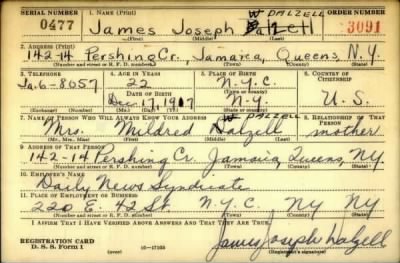 SERIAL NUMBER 1. NAME (Print) ORDER NUMBER
W DALZELL
0477 James Joseph Dalzell 3091
(First) (Middle) (Last)
2. ADDRESS (Print)
142-14 Pershing Cr., Jamaica, Queens, N.Y.
(Number and street or R. F. D. number) (Town) (County) (State)
3. TELEPHONE 4. AGE IN YEARS 5. PLACE OF BIRTH 6. COUNTRY OF CITIZENSHIP
Ja. 6-8057 22 N.Y.C.
DATE OF BIRTH (Town or county)
Dec. 17, 1917 N.Y. U.S.
(Exchange) (Number) (Mo.) (Day) (Yr.) (State or country)
7. NAME OF PERSON WHO WILL ALWAYS KNOW YOUR ADDRESS 8. RELATIONSHIP OF THAT PERSON
W DALZELL
Mrs. Mildred Dalzell mother
(Mr., Mrs., Miss) (First) (Middle) (Last)
9. ADDRESS OF THAT PERSON
142-14 Pershing Cr. Jamaica Queens, NY.
(Number and street or R. F. D. number) (Town) (County) (State)
10. EMPLOYER'S NAME
Daily News Syndicate
11. PLACE OF EMPLOYMENT OR BUSINESS
220 E. 42 St. N.Y.C. NY NY
(Number and street or R. F. D. number) (Town) (County) (State)
I AFFIRM THAT I HAVE VERIFIED ABOVE ANSWERS AND THAT THEY ARE TRUE.
REGISTRATION CARD
D. S. S. Form 1 (over) 16-17105
James Joseph Dalzell